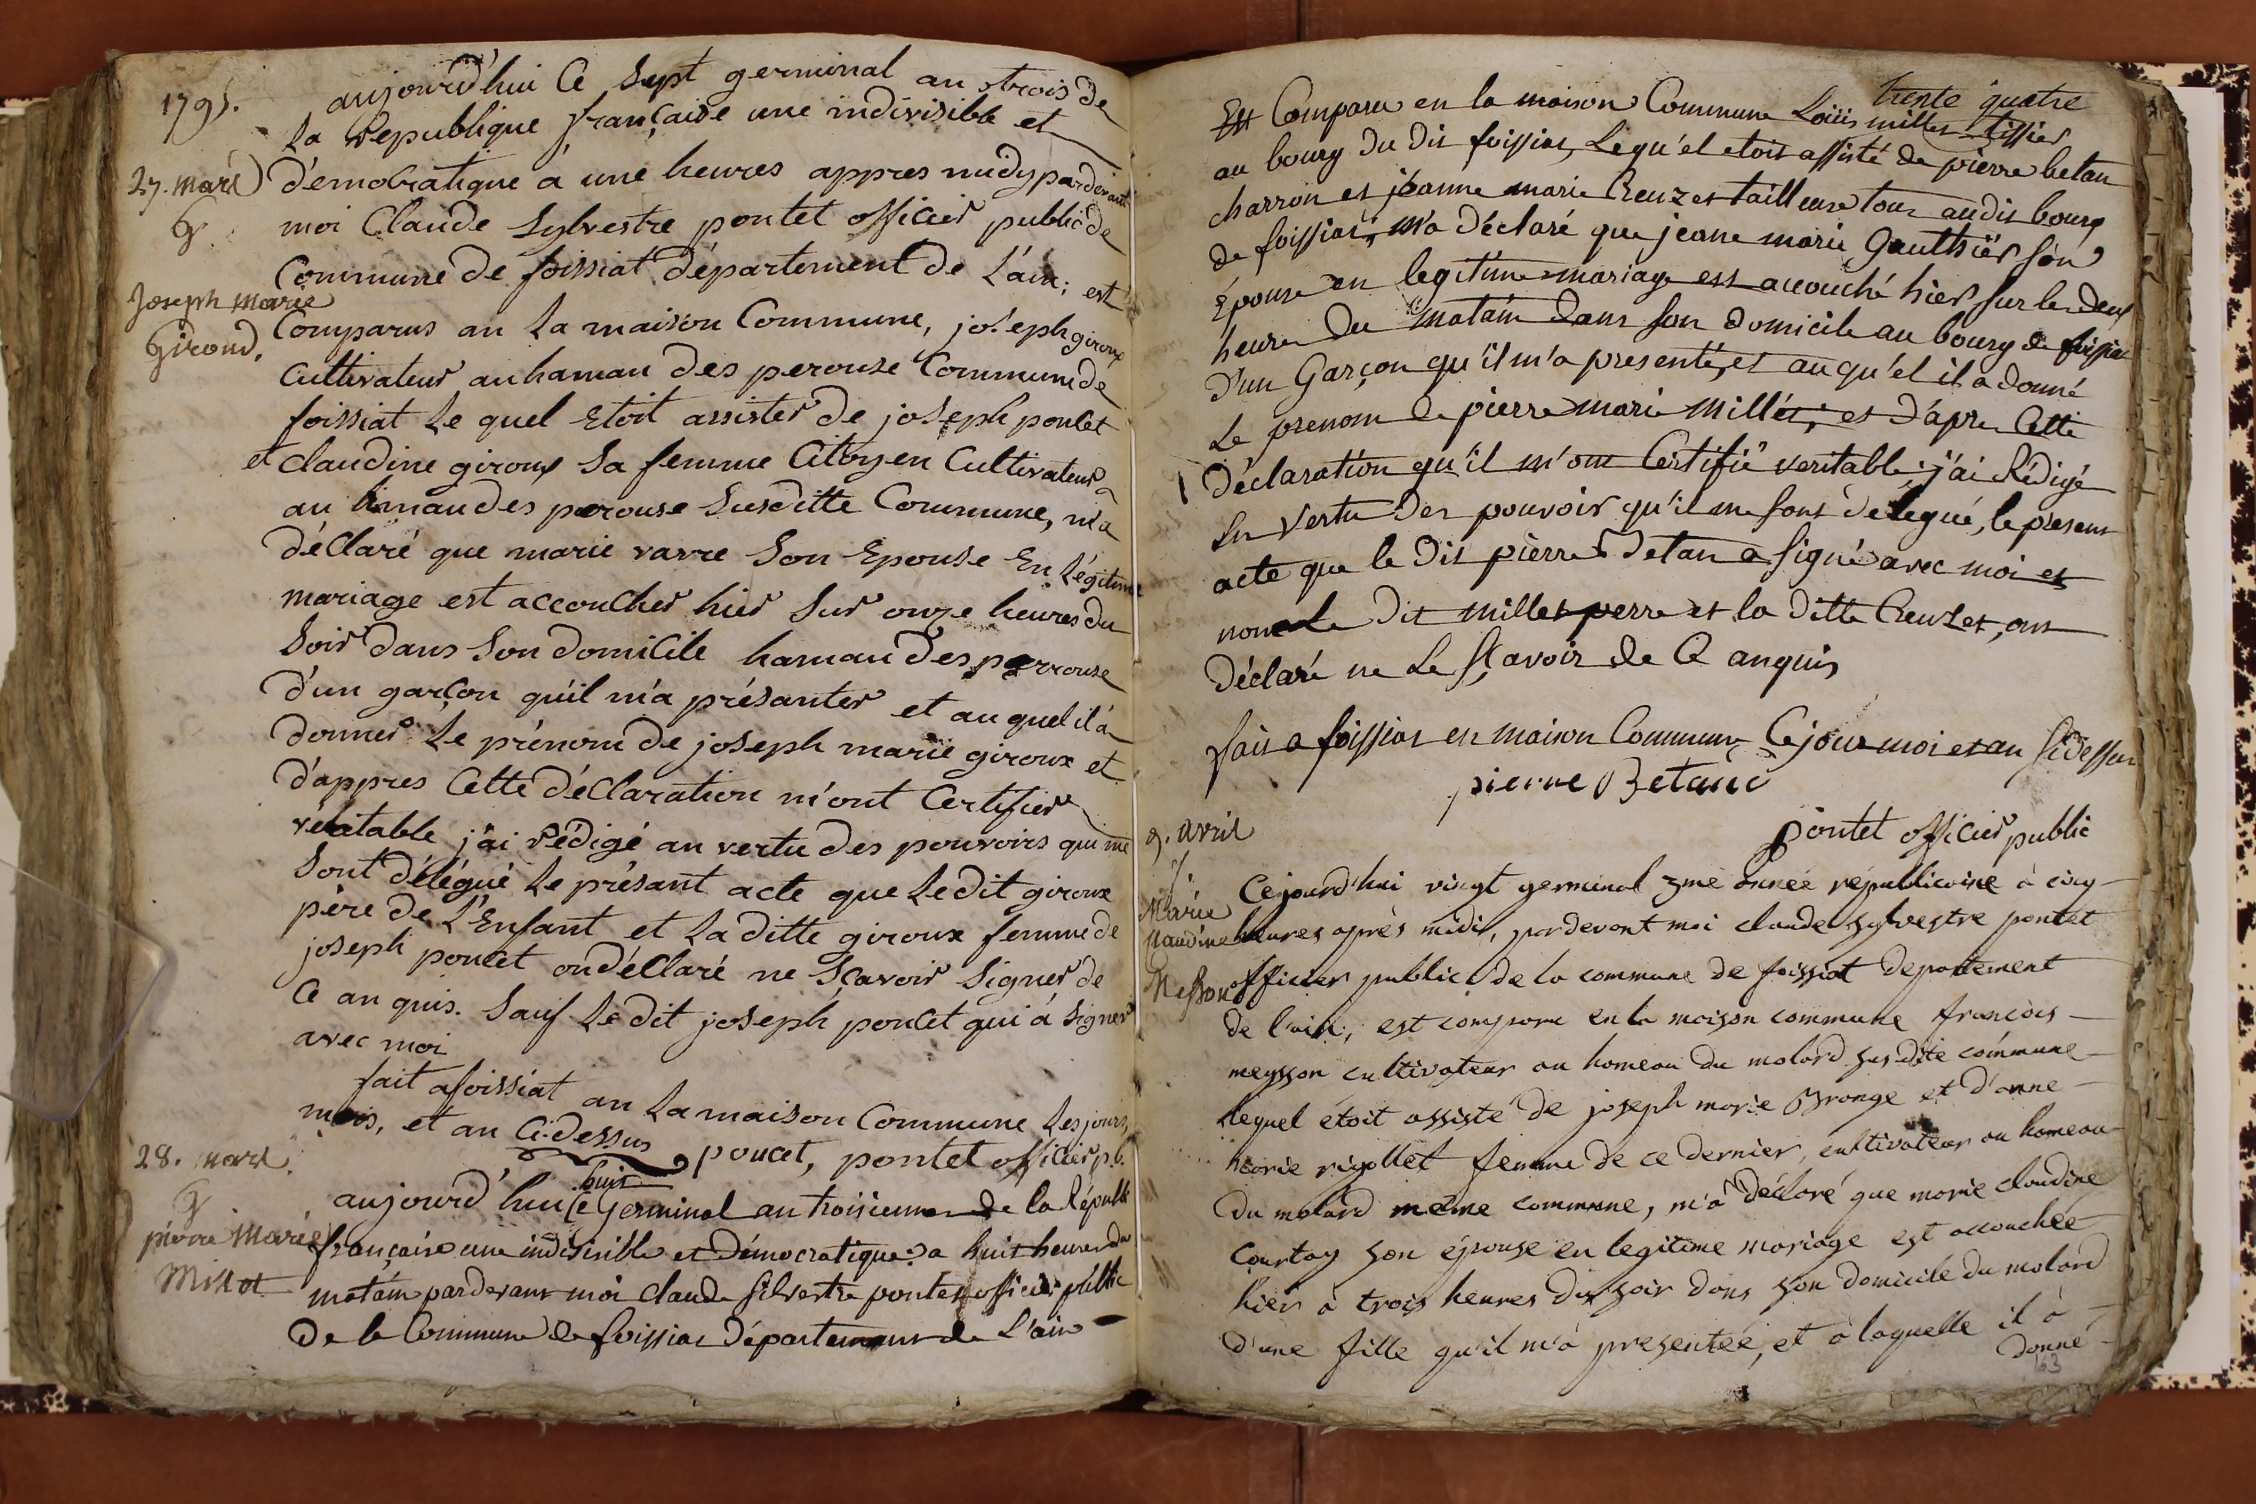 1795.
27. mars
G
Joseph marie
Giroud.
aujourd'hui Ce Sept germinal an trois de
La Republique française une indivisible et
démocratique à une heures appres midy pardevant
moi Claude Sylvestre pontet officier public de
Commune de foissiat département de L'ain; est
Comparus an La maison Commune, joseph giroux
Cultivateur au hamau des perouse Commune de
foissiat Le quel Etoit assister de joseph poncet
et Claudine giroux Sa femme Citoyen Cultivateur
au hamau des perouse Susditte Commune, m'a
déClaré que marie varre Son Epouse En Légitime
mariage est accoucher hier Sur onze heures du
Soir dans Son domiCile hamau des perrouse
d'un garçon qu'il m'a présanter et au quel il à
donner Le prénom de joseph marie giroux et
d'appres Cette déClaration m'ont Certifier
véritable j'ai rédigé an vertu des pouvoirs qui me
Sont délégué Le présant acte que Ledit giroux
père de L'Enfant et La ditte giroux femme de
joseph poncet on déClaré ne Sçavoir Signer de
Ce an quis. Sauf Ledit joseph poncet qui à Signer
avec moi
fait afoissiat an La maison Commune Les jours,
mois, et an Ci-dessus poncet, pontet officier p.b.
28. mars.
G
pierre Marie
Millet
aujourd'hui Ce huit Germinal an troisieme de la Républi
française une indivisible et Démocratique: a huit heures du
matain pardevant moi claude Silvestre pontet officier public
De la Commune de foissiat Département de L'ain
trente quatre
Est Comparu en la maison Commune Loüis millet tissier
au bourg du dit foissiat, Lequ'el etoit assisté de pierre betan
charron et jéanne marie Creuzet tailleuse tous au dit bourg
de foissiat, m'a déclaré que jeane marie Gauthier Son
Épouse en legitime mariage est accouché hier sur les deux
heures du matain dans son domicile au bourg de foissiat
d'un Garçon qu'il m'a presenté, et auqu'el il a donné
Le prenom de pierre marie Millet; et d'apres Cette
déclaration qu'il m'ont Certifié veritable, j'ai Rédigé
En vertu des pouvoir qu'il me sont délegué, le present
acte que le dit pierre Betan a signé avec moi et
non le dit millet perre et la ditte Creuzet, ont
déclaré ne Le sçavoir de Ce anquis
fait a foissiat en maison Commune Cejour moi et an sidessus
pierre Betanc
pontet officier public
9. avril
f.
Marie
Claudine
Messon
Cejourd'hui vingt germinal 3me année républicaine à cinq
heures après midi, pardevant moi claude sylvestre pontet
officier public de la commune de foissiat departement
de l'ain, est comparu en la maison commune françois
meysson cultivateur au hameau du molard susdite commune
lequel étoit assisté de joseph marie Bronge et d'anne
marie rigollet femme de ce dernier, cultivateur au hameau
du molard même commune, m'à déclaré que marie claudine
Courtoy son épouse en legitime mariage est accouchée
hier à trois heures du soir dans son domicile du molard
d'une fille qu'il m'à presentée, et à laquelle il à
donné
63